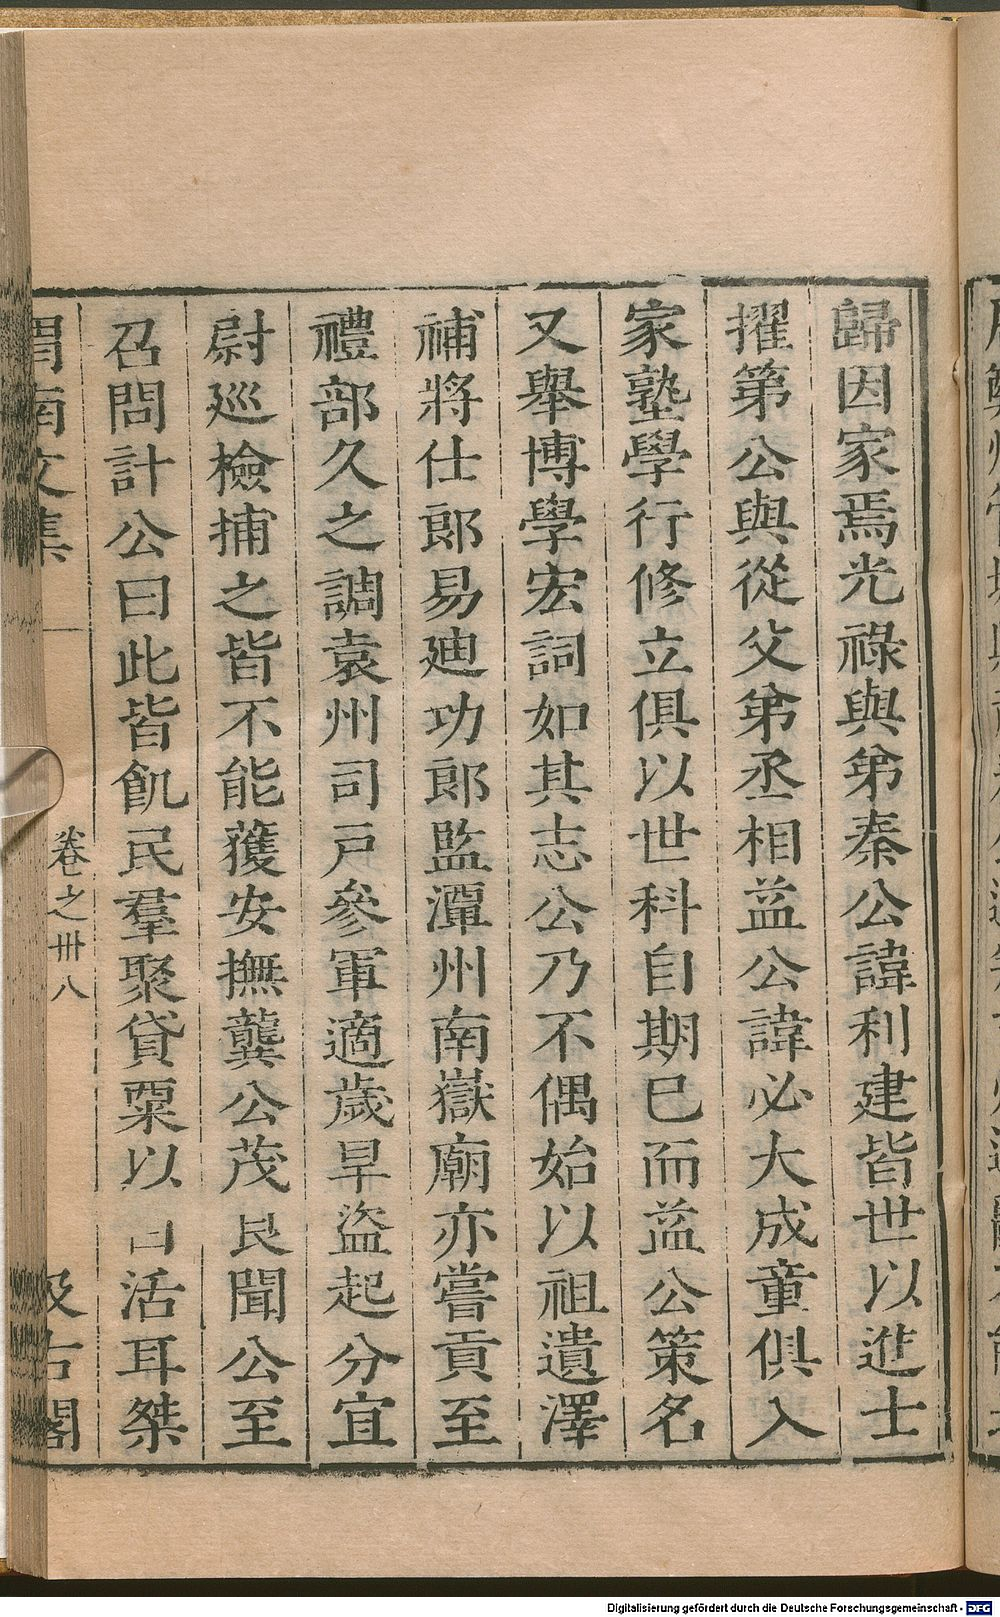 歸因家焉光祿與弟秦公諱利建皆世以進士
擢第公與從父弟丞相益公諱必大成童俱入
家塾學行修立俱以世科自期已而益公策名
又舉博學宏詞如其志公乃不偶始以祖遺澤
補將仕郎易廸功郎監潭州南嶽廟亦嘗貢至
禮部久之調袁州司戸參軍適歲旱盜起分宜
尉廵檢捕之皆不能獲安撫龔公茂良聞公至
召問計公曰此皆飢民羣聚貸粟以自活耳桀
渭南文集
卷之卅八
汲古閣
Digitalisierung gefördert durch die Deutsche Forschungsgemeinschaft - DFG